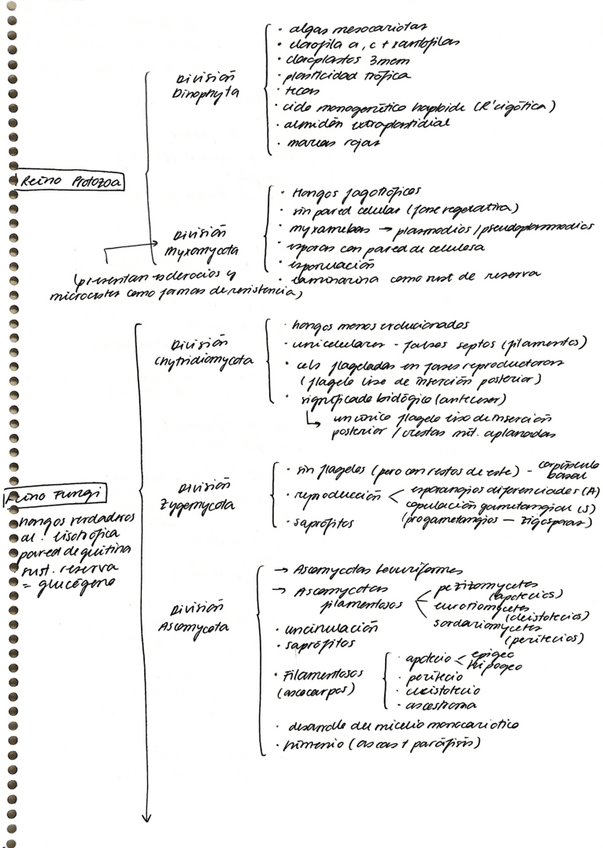 Reino Protozoa
División
Dinophyta
· algas mesocariotas
· clorofila a, c + xantofilas
· cloroplastos 3 mem
· plasticidad trófica
· tecas
· ciclo monogenético haploide (R! cigótica)
· almidón extraplastidial
· mareas rojas
División
Myxomycota
(presentan esclerocios y
microcistes como formas de resistencia)
· Hongos fagotróficos
· sin pared celular (fase vegetativa)
· myxamebas → plasmodios / pseudoplasmodios
· esporas con pared de celulosa
· esporulación
· laminarina como sust. de reserva
Reino Fungi
hongos verdaderos
al. lisotrófica
pared de quitina
sust. reserva
= glucógeno
División
Chytridiomycota
· hongos menos evolucionados
· unicelulares - falsos septos (filamentos)
· cels flageladas en fases reproductoras
(flagelo liso de inserción posterior)
· significado biológico (antecesor)
↳ un único flagelo liso de inserción
posterior / crestas mit. aplanadas
División
Zygomycota
· sin flagelos (pero con restos de este) - corpúsculo
basal
· reproducción < esporangios diferenciados (A)
copulación gametangial (S)
(progametangios — zigosporas)
· saprófitos
División
Ascomycota
→ Ascomycotas levuriformes
→ Ascomycotas
filamentosos
pezizomycetes
(apotecios)
eurotiomycetes
(cleistotecios)
sordariomycetes
(peritecios)
· uncinulación
· saprófitos
· Filamentosos
(ascocarpos)
· apotecio < epigeo
hipogeo
· peritecio
· cleistotecio
· ascostroma
· desarrollo del micelio monocariotico
· himenio (ascas + paráfisis)